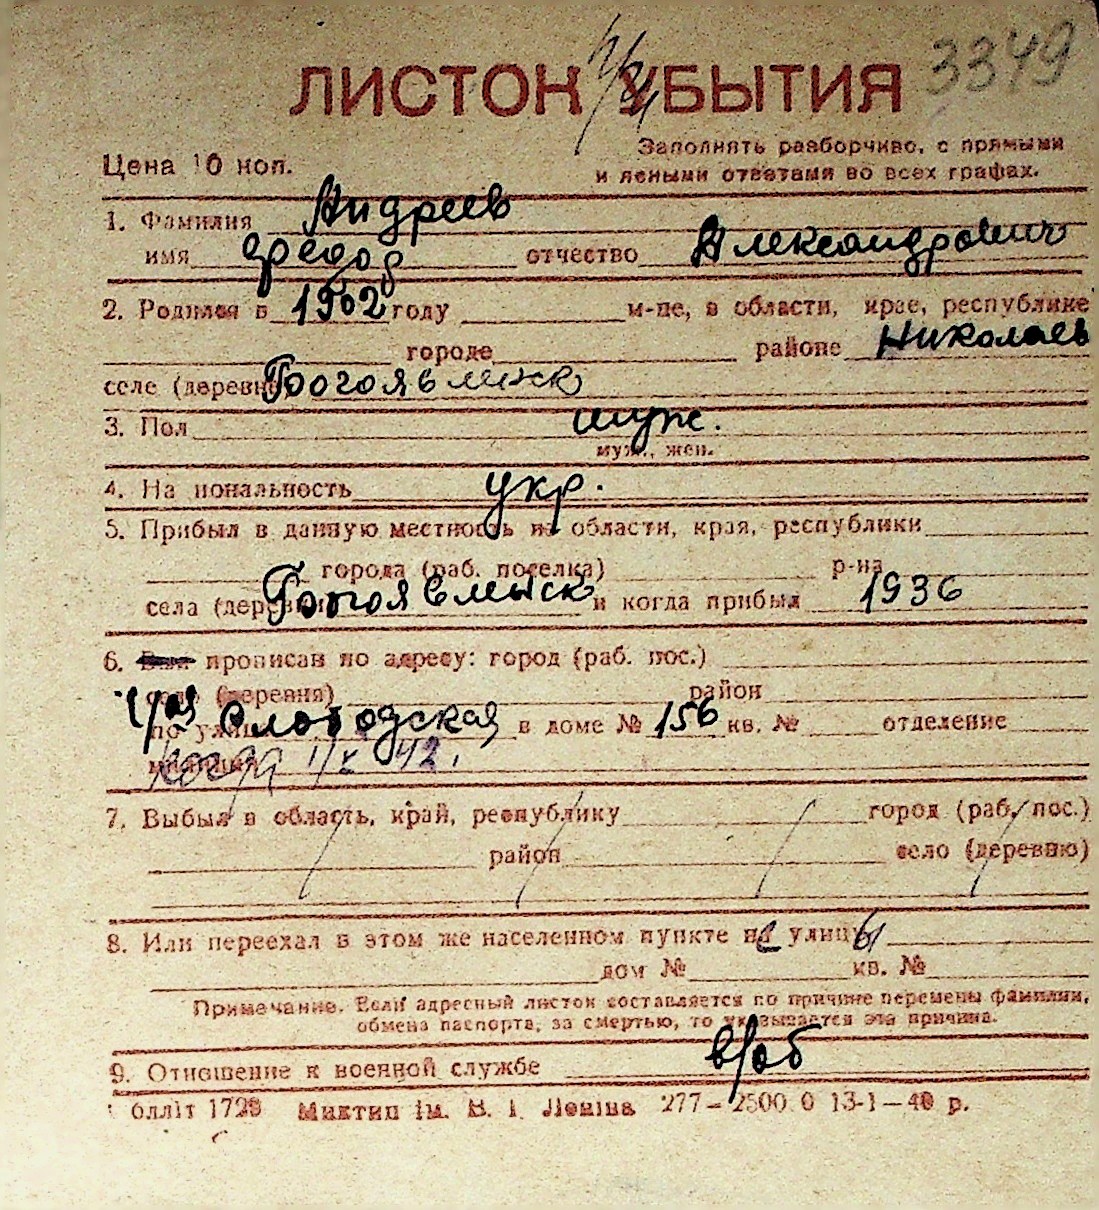 3349
ЛИСТОК УБЫТИЯ
Цена 10 коп.
Заполнять разборчиво, с прямыми
и ясными ответами во всех графах.
1. Фамилия Андреев
имя Федор отчество Александрович
2. Родился в 1902 году м-це, в области, крае, республике
городе районе Николаев
селе (деревне Богоявленск
3. Пол муж.
муж., жен.
4. Национальность укр.
5. Прибыл в данную местность из области, края, республики
города (раб. поселка) р-на
села (деревни Богоявленск и когда прибыл 1936
6. Был прописан по адресу: город (раб. пос.)
село (деревня) район
по улице Слободская в доме № 156 кв. № отделение
милиции когда 1/X 42.
7. Выбыл в область, край, республику город (раб. пос.)
район село (деревню)
8. Или переехал в этом же населенном пункте на улицу
дом № кв. №
Примечание. Если адресный листок составляется по причине перемены фамилии,
обмена паспорта, за смертью, то указывается эта причина.
9. Отношение к военной службе в/об
блліт 1728 Миктип ім. В. І. Леніна 277–2500 0 13-1–40 р.